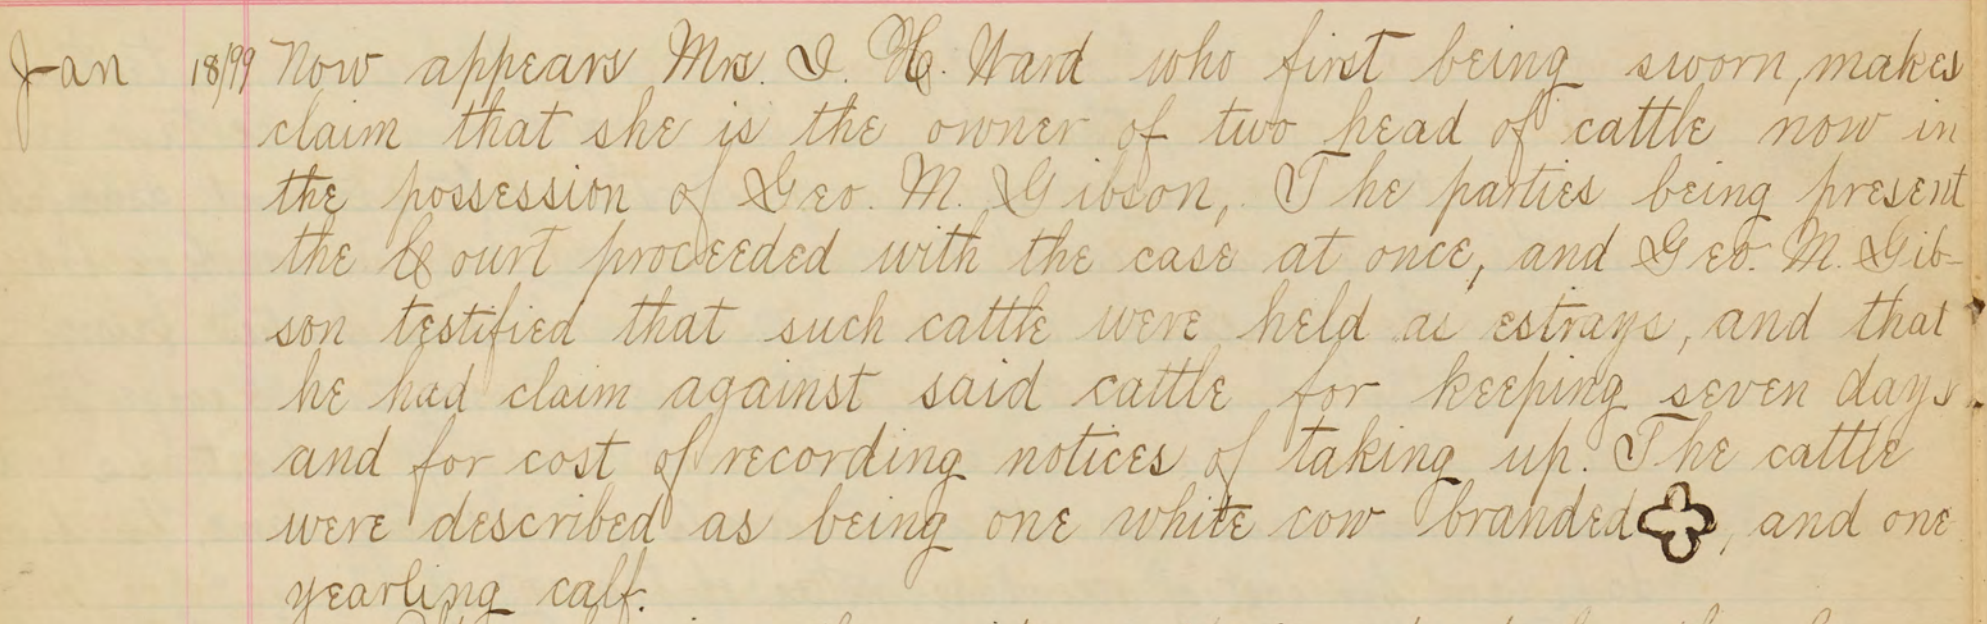 Jan 18/99 Now appears Mrs. I. H. Ward who first being sworn, makes
claim that she is the owner of two head of cattle now in
the possession of Geo. M. Gibson, The parties being present
the Court proceeded with the case at once, and Geo. M. Gib-
son testified that such cattle were held as estrays, and that
he had claim against said cattle for keeping seven days
and for cost of recording notices of taking up. The cattle
were described as being one white cow branded , and one
yearling calf.